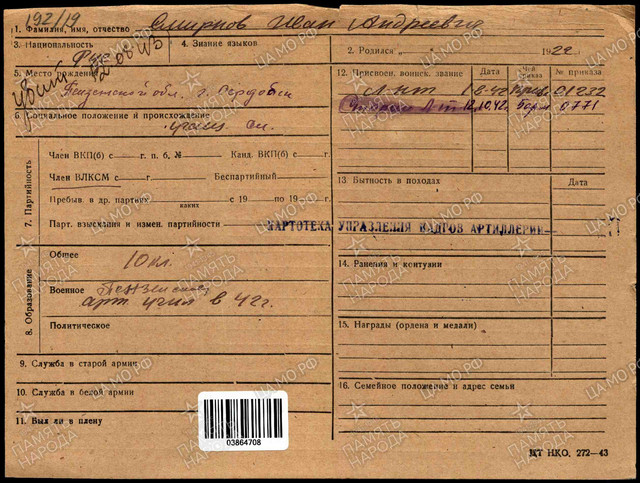 192/19
1. Фамилия, имя, отчество Смирнов Иван Андреевич
3. Национальность Рус 4. Знание языков
2. Родился „ “ 1922
5. Место рождения
Пензенской обл. г. Сердобск
убит
6. Социальное положение и происхождение
служ.
Член ВКП(б) с г. п. б. № Канд. ВКП(б) с г.
Член ВЛКСМ с г. Беспартийный
Пребыв в др. партиях с 19 по 19 г.
каких
Парт. взыскания и измен. партийности
7. Партийность
Общее 10 кл.
Военное Пензенское
арт. учил в 42 г.
Политическое
8. Образование
9. Служба в старой армии
10. Служба в белой армии
11. Был ли в плену
12. Присвоен. воинск. звание Дата Чей приказа № приказа
Л-нт 8.42 01232
Л-т 12.10.42. 0771
13. Бытность в походах Дата
КАРТОТЕКА УПРАВЛЕНИЯ КАДРОВ АРТИЛЛЕРИИ
14. Ранения и контузии
15. Награды (ордена и медали)
16. Семейное положение и адрес семьи
03864708
ЦТ НКО. 272—43
ПАМЯТЬ НАРОДА
ЦАМО.РФ